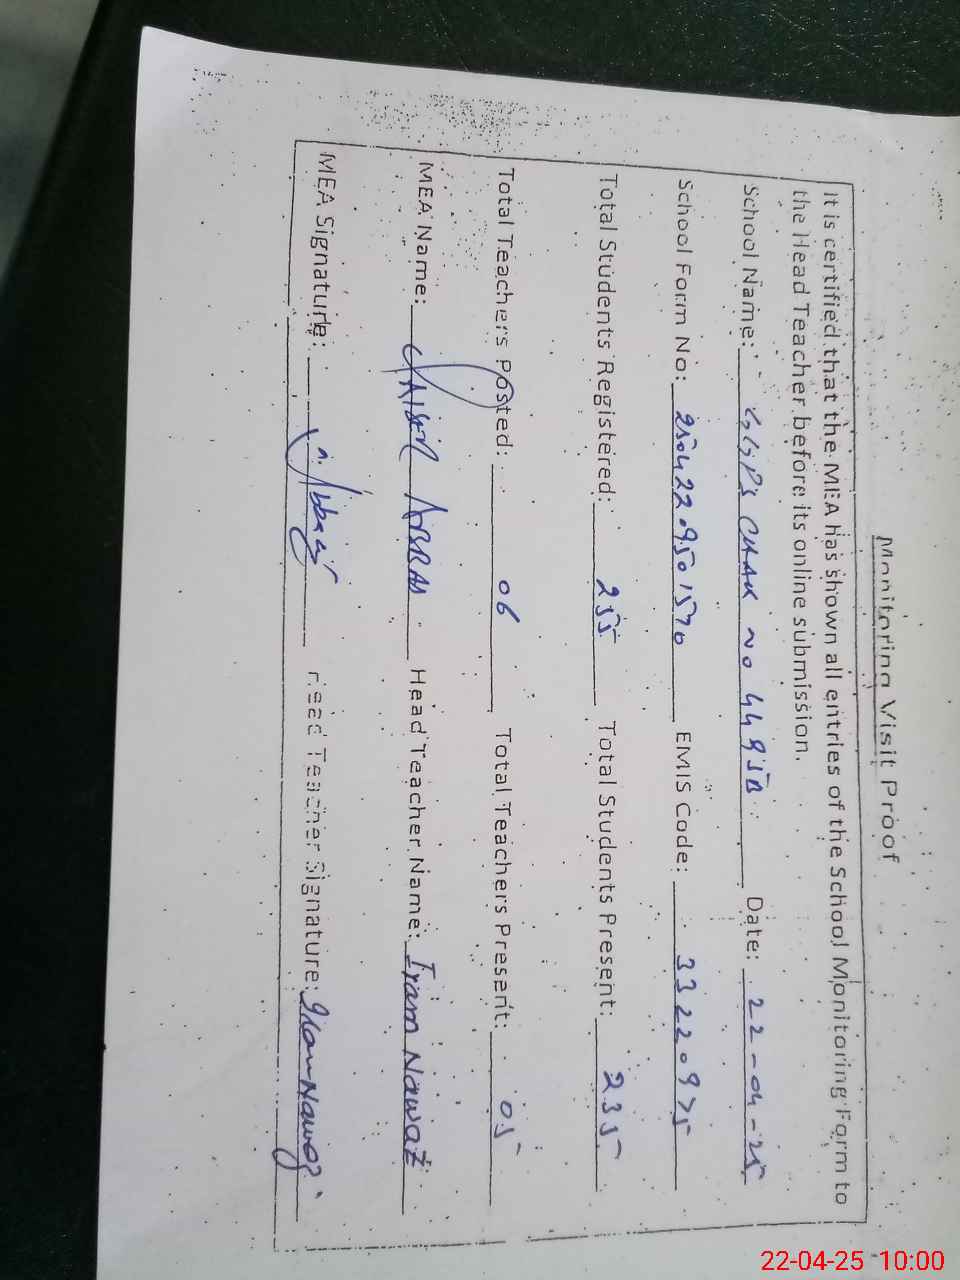 Monitoring Visit Proof
It is certified that the MEA has shown all entries of the School Monitoring Form to
the Head Teacher before its online submission.
School Name: GGPS CHAK NO 449JB Date: 22-04-25
School Form No: 25042209501570 EMIS Code: 33220975
Total Students Registered: 255 Total Students Present: 235
Total Teachers Posted: 06 Total Teachers Present: 05
MEA Name: Head Teacher Name: Iram Nawaz
MEA Signature: Head Teacher Signature: Iram Nawaz
22-04-25 10:00